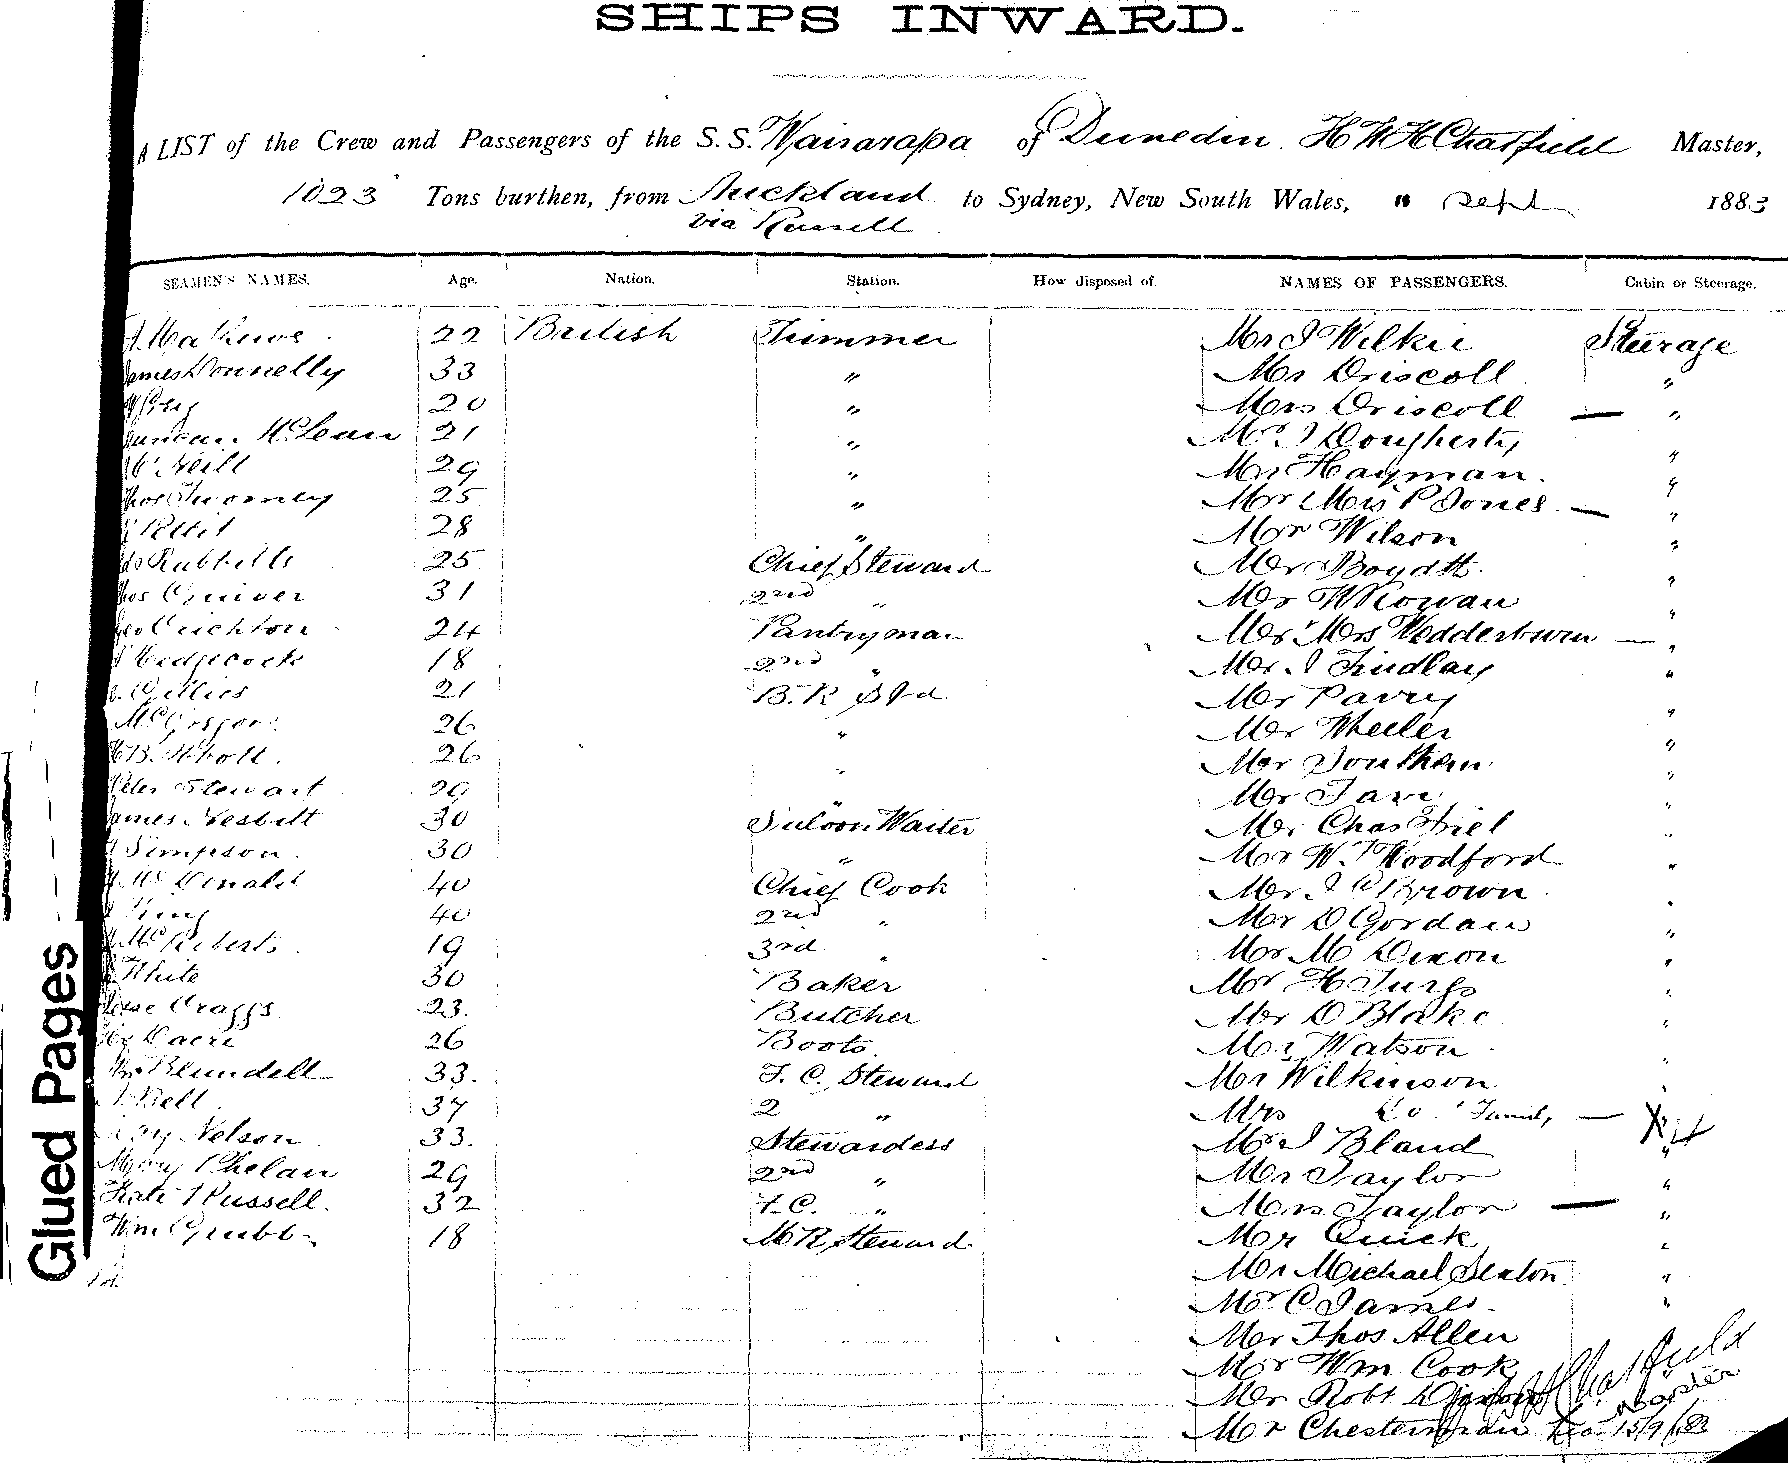 SHIPS INWARD.
A LIST of the Crew and Passengers of the S.S. Wairarapa of Dunedin H W H Chatfield Master,
1023 Tons burthen, from Auckland to Sydney, New South Wales, Sept 1883
via Russell
SEAMEN'S NAMES. Age. Nation. Station. How disposed of. NAMES OF PASSENGERS. Cabin or Steerage.
22 British Trimmer Mr J Wilkie Steerage
James Donnelly 33 " Mr Driscoll "
20 " Mrs Driscoll — "
Duncan McLean 21 " Mr J Dougherty "
McNeill 29 " Mr Hayman "
Thos Twomey 25 " Mr & Mrs P Jones — "
28 " Mr Wilson "
25 Chief Steward Mr Boydtt "
31 2nd " Mr W Rowan "
Geo Crichton 24 Pantryman Mr & Mrs Wedderburn — "
Hedgecock 18 2nd " Mr J Findlay "
Gillies 21 B.R Std Mr Parry "
McGregor 26 " Mr Wheeler "
26 " Mr Southern "
Peter Stewart 29 " Mr "
James Nesbitt 30 Saloon Waiter Mr Chas Friel "
Simpson 30 " Mr W T Woodford "
McDonald 40 Chief Cook Mr J C Brown "
King 40 2nd " Mr D Gordan "
McRoberts 19 3rd " Mr M Dixon "
White 30 Baker Mr H "
Craggs 23. Butcher Mr D Blake "
Dacre 26 Boots Mr Watson "
Wm Blundell 33. F. C. Steward Mr Wilkinson "
Bell 37 2 " Mrs Do. & Family — 4
Nelson 33. Stewardess Mr J Bland "
Mary Phelan 29 2nd " Mr Taylor "
Kate Russell. 32 F.C. " Mrs Taylor — "
Wm Grubb 18 M R Steward Mr Quick "
Mr Michael Sexton "
Mr C James "
Mr Thos Allen
Mr Wm Cook
Mr Robt
Mr Chesterman
Chatfield
Master
15/9/83
Glued Pages